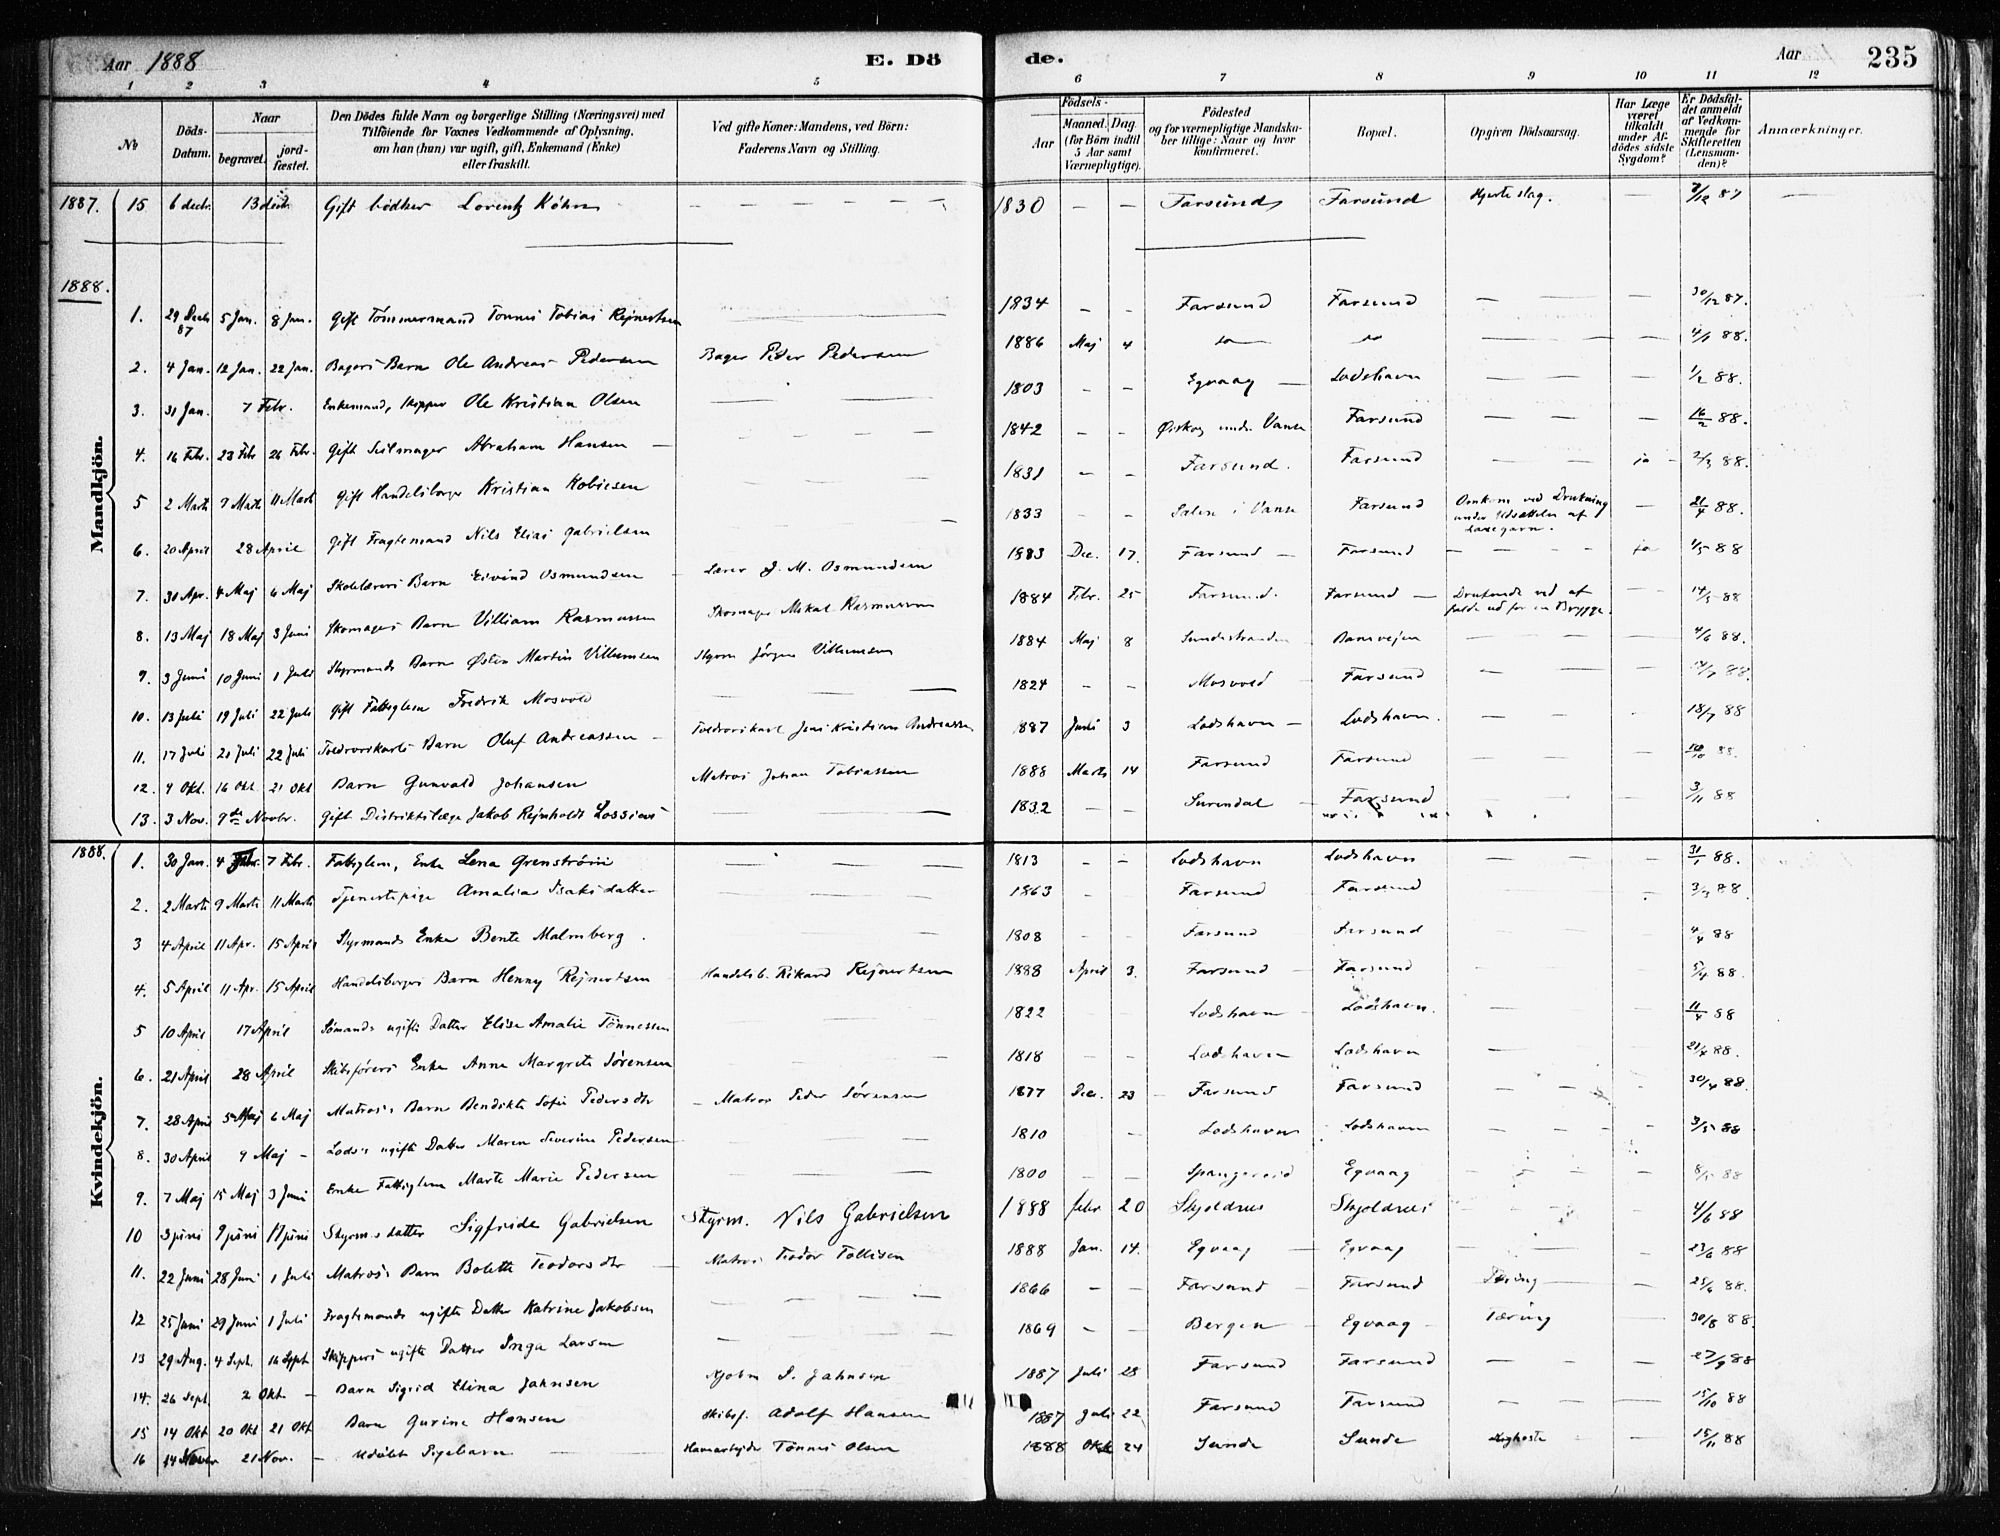 Aar 1888 E. Dö de. Aar 235
1 2 3 4 5 6 7 8 9 10 11 12
No
Döds-Datum.
Naar
begravet.
jordfæstet.
Den Dödes fulde Navn og borgerlige Stilling (Næringsvei) med
Tilföiende for Voxnes Vedkommende af Oplysning,
om han (hun) var ugift, gift, Enkemand (Enke)
eller fraskilt.
Ved gifte Koner: Mandens, ved Börn:
Faderens Navn og Stilling.
Födsels-
Aar
Maaned. Dag.
(for Börn indtil
5 Aar samt
Værnepligtige).
Födested
og for værnepligtige Mandskaber tillige: Naar og hvor
konfirmeret.
Bopæl.
Opgiven Dödsaarsag.
Har Læge
været
tilkaldt
under Afdödes sidste
Sygdom?
Er Dödsfaldet anmeldt
af Vedkommende for
Skifteretten
(Lensmanden)?
Anmærkninger.
1887. 15 6 decbr. 13 decbr. Gift bödker Lorentz Köhn — 1830 — — Farsund Farsund Hjerteslag. — 7/12 87 —
1888.
Mandkjön.
1. 29 Decb 87 5 Jan. 8 Jan. Gift Tømmermand Tønnes Tobias Rejnertsen — 1834 — — Farsund Farsund — — 30/12 87.
2. 4 Jan. 12 Jan. 22 Jan. Bagers Barn Ole Andreas Pedersen Bager Peder Pedersen 1886 Maj 4 do do — — 4/1 88.
3. 31 Jan. 7 Febr. Enkemand, Skipper Ole Kristian Olsen — 1803 — — Egvaag Lodshavn — — 1/2 88.
4. 16 Febr. 23 Febr 26 Febr. Gift Seilmager Abraham Hansen — 1842 — — under Vanse Farsund — — 16/2 88.
5 2 Marts 9 Marts 11 Marts Gift Handelsborger Kristian — 1831 — — Farsund. Farsund — ja 2/3 88.
6. 20 April 28 April Gift Fragtemand Nils Elias Gabrielsen — 1833 — — i Vanse Farsund Omkom ved Drukning under Udsættelse af laxegarn. — 21/4 88.
7. 30 Apr. 4 Maj 6 Maj Skolelærers Barn Eivind Osmundsen Lærer J. M. Osmundsen 1883 Dec. 17. Farsund Farsund — ja 1/5 88
8. 13 Maj 18 Maj 3 Juni Skomagers Barn Villiam Rasmussen Skomager Mikal Rasmussen 1884 Febr. 25 Farsund. Farsund Druknede ved at falde ud for en Brygge. 14/5 88
9. 3 Juni 10 Juni 1 Juli Styrmands Barn Østen Martin Villumsen Styrm Jörgen Villumsen 1884 Maj 8 Sundestranden — — 4/6 88.
10. 13 Juli 19 Juli 22 Juli Gift Fattiglem Fredrik Mosvold — 1824 — — Mosvold Farsund — — 14/7 88.
11. 17 Juli 21 Juli 22 Juli Toldrorskarls Barn Oluf Andreassen Toldrorskarl Jens Kristian Andreassen 1887 Juni 3 Lodshavn Lodshavn. — — 18/7 88
12. 4 Okt. 16 Okt. 21 Okt Barn Gunvald Johansen Matros Johan Tobiassen 1888 Marts 14 Farsund Farsund — 10/10 88.
13. 3 Nov. 9de Novbr. Gift Distriktslæge Jakob Rejnholdt Lossius — 1832 — — Surendal Farsund 3/11 88
1888.
Kvindekjön.
1. 30 Jan. 4 Febr. 7 Febr. Fattiglem, Enke Lena Grenström — 1813 — — Lodshavn Lodshavn — — 31/1 88.
2. 2 Marts 9 Marts 11 Marts Tjenestepige Amalia Isaksdatter — 1863 — — Farsund Farsund — 3/3 88
3 4 April 11 Apr. 15 April Styrmands Enke Bente Malmberg. — 1808 — — Farsund Farsund — — 4/4 88
4. 5 April 11 Apr. 15 April Handelsborgers Barn Henny Rejnertsen Handelsb. Rikard Rejnertsen 1888 April 3. Farsund Farsund — — 5/4 88
5 10 April 17 April Sømands ugifte Datter Elise Amalie Tönnessen — 1822 Lodshavn Lodshavn. — — 11/4 88
6. 21 April 28 April Skibsførers Enke Anne Margrete Sørensen — 1818 Lodshavn Lodshavn — 21/4 88.
7. 28 April 5 Maj 6 Maj Matros's Barn Bendikte Sofie Pedersdtr Matros Peder Sørensen 1877 Dec. 23 Farsund Farsund — 30/4 88.
8. 30 April 9 Maj Lods's ugifte Datter Maren Severine Pedersen — 1810 Lodshavn Lodshavn — 3/5 88
9. 7 Maj 15 Maj 3 Juni Enke Fattiglem Marte Marie Pedersen — 1800 Spangereid Egvaag — 8/5 88
10 3 juni 9 juni 17 juni Styrm.s datter Sigfride Gabrielsen Styrm. Nils Gabrielsen 1888 febr 20 Skjoldnes Skjoldnes 4/6 88
11. 22 Juni 28 Juni 1 Juli Matros's Barn Bolette Teodorsdtr Matros Teodor Tollisen 1888 Jan. 14. Egvaag Egvaag — 23/6 88
12 25 Juni 29 Juni 1 Juli Fragtemands ugifte Datter Katrine Jakobsen — 1866 — — Farsund Farsund Tæring — 25/6 88.
13 29 Aug. 4 Sept. 16 Sept Skippers ugifte Datter Inga Larsen — 1869 — Bergen Egvaag Tæring — 30/8 88.
14. 26 Sept. 2 Okt. Barn Sigrid Elina Jahnsen S. Jahnsen 1887 Juli 28 Farsund Farsund — 27/9 88
15 14 Okt 20 Okt 21 Okt Barn Gurine Hansen Skibsf. Adolf Hansen 1887 Juli 22 Farsund Farsund — 15/10 88
16 14 Nover 21 Nov. Udøbt Pigebarn Havnearbejder Tönnes Olsen 1888 Okt 24 Sunde Sunde Kighoste — 15/11 88